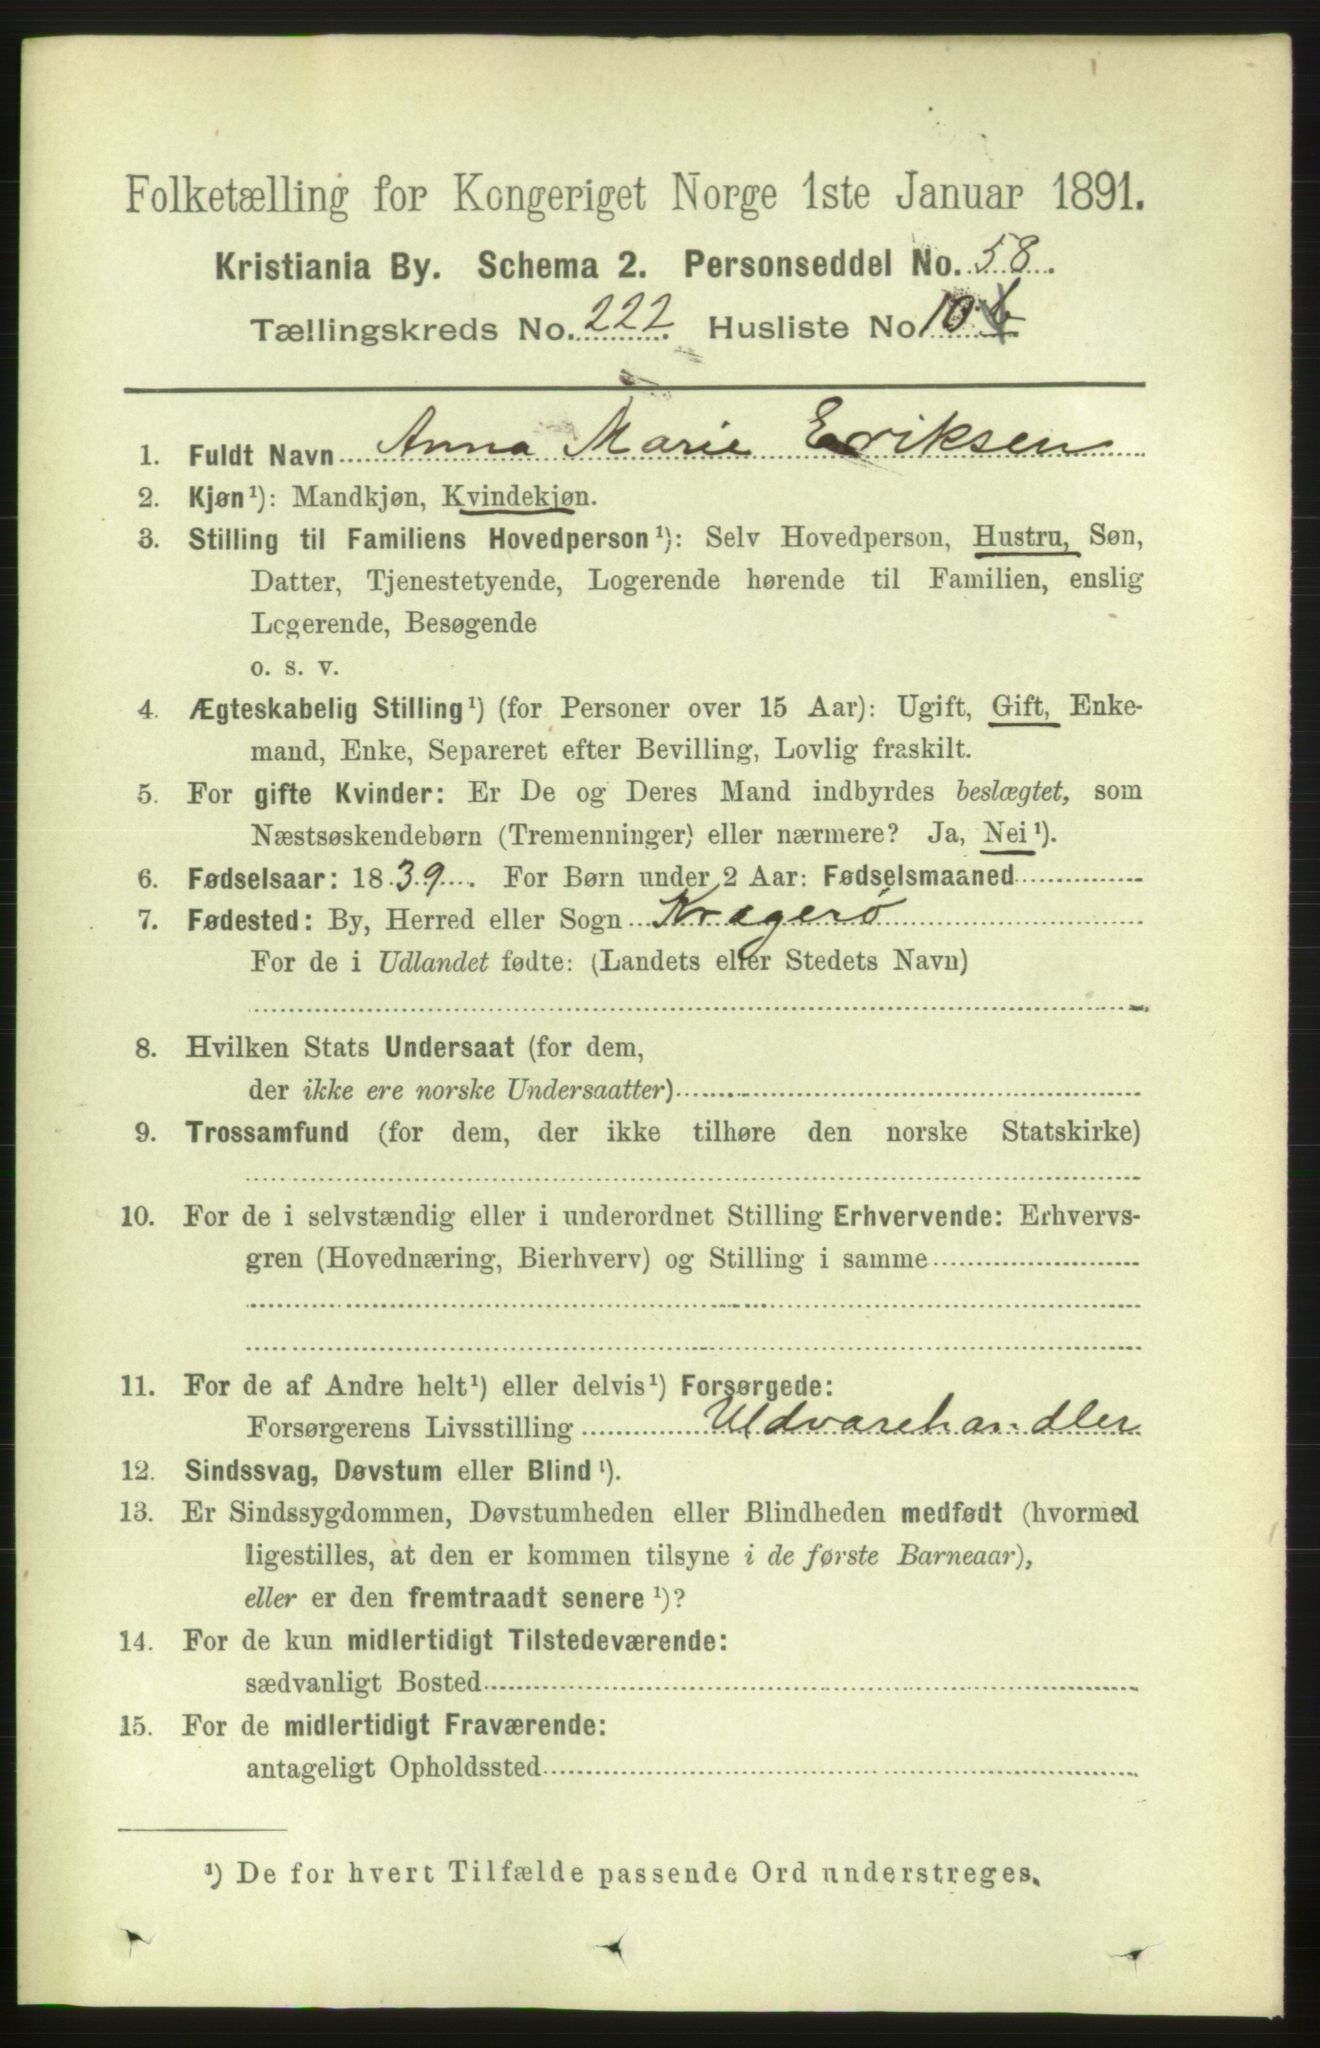 Folketælling for Kongeriget Norge 1ste Januar 1891.
Kristiania By. Schema 2. Personseddel No. 58.
Tællingskreds No. 222. Husliste No 10
1. Fuldt Navn Anna Marie Eriksen
2. Kjøn¹): Mandkjøn, Kvindekjøn.
3. Stilling til Familiens Hovedperson¹): Selv Hovedperson, Hustru, Søn,
Datter, Tjenestetyende, Logerende hørende til Familien, enslig
Logerende, Besøgende
o. s. v.
4. Ægteskabelig Stilling¹) (for Personer over 15 Aar): Ugift, Gift, Enke-
mand, Enke, Separeret efter Bevilling, Lovlig fraskilt.
5. For gifte Kvinder: Er De og Deres Mand indbyrdes beslægtet, som
Næstsøskendebørn (Tremenninger) eller nærmere? Ja, Nei¹).
6. Fødselsaar: 1839. For Børn under 2 Aar: Fødselsmaaned
7. Fødested: By, Herred eller Sogn Kragerö
For de i Udlandet fødte: (Landets eller Stedets Navn)
8. Hvilken Stats Undersaat (for dem,
der ikke ere norske Undersaatter)
9. Trossamfund (for dem, der ikke tilhøre den norske Statskirke)
10. For de i selvstændig eller i underordnet Stilling Erhvervende: Erhvervs-
gren (Hovednæring, Bierhverv) og Stilling i samme
11. For de af Andre helt¹) eller delvis¹) Forsørgede:
Forsørgerens Livsstilling Uldvarehandler
12. Sindssvag, Døvstum eller Blind¹).
13. Er Sindssygdommen, Døvstumheden eller Blindheden medfødt (hvormed
ligestilles, at den er kommen tilsyne i de første Barneaar),
eller er den fremtraadt senere¹)?
14. For de kun midlertidigt Tilstedeværende:
sædvanligt Bosted
15. For de midlertidigt Fraværende:
antageligt Opholdssted
¹) De for hvert Tilfælde passende Ord understreges.